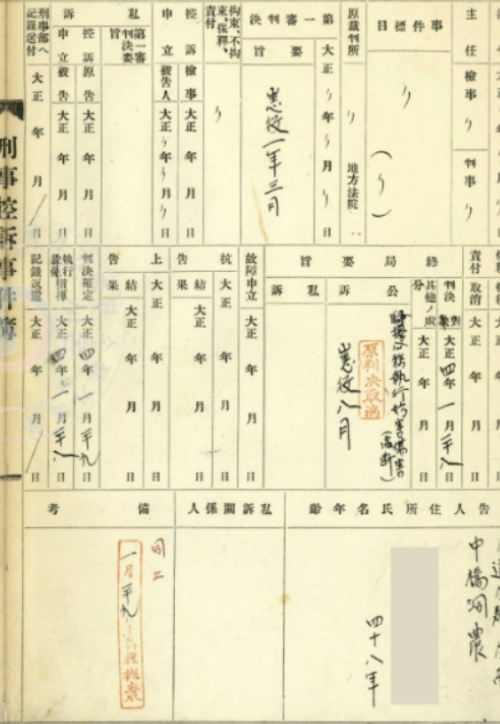 主任 檢事 り 判事 り
事件標目 り (り)
原裁判所 り 地方法院
第一審判決 大正り年り月り日
要旨 懲役一年三月
拘束、不拘束、保釋、責付 り
控訴申立 檢事 被告人 大正り年り月り日
私訴 第一審判決要旨
控訴申立 原告 大正 年 月 日
被告 大正 年 月 日
刑事部へ記錄送付 大正 年 月 日
刑事控訴事件簿
責付 取消 大正 年 月 日
判決 其他ノ處分 大正四年一月廿八日
終局要旨 公訴 公務執行妨害傷害
原判決取消
懲役八月
私訴
故障申立 大正 年 月 日
抗告 大正 年 月 日
結果 大正 年 月 日
上告 大正 年 月 日
結果 大正 年 月 日
判決確定 大正四年一月廿九日
執行指揮 大正四年一月廿八日
記錄返還 大正 年 月 日
告人住所氏名年齡
中橋洞農
四十八年
私訴關係人
備考
同上
一月廿九